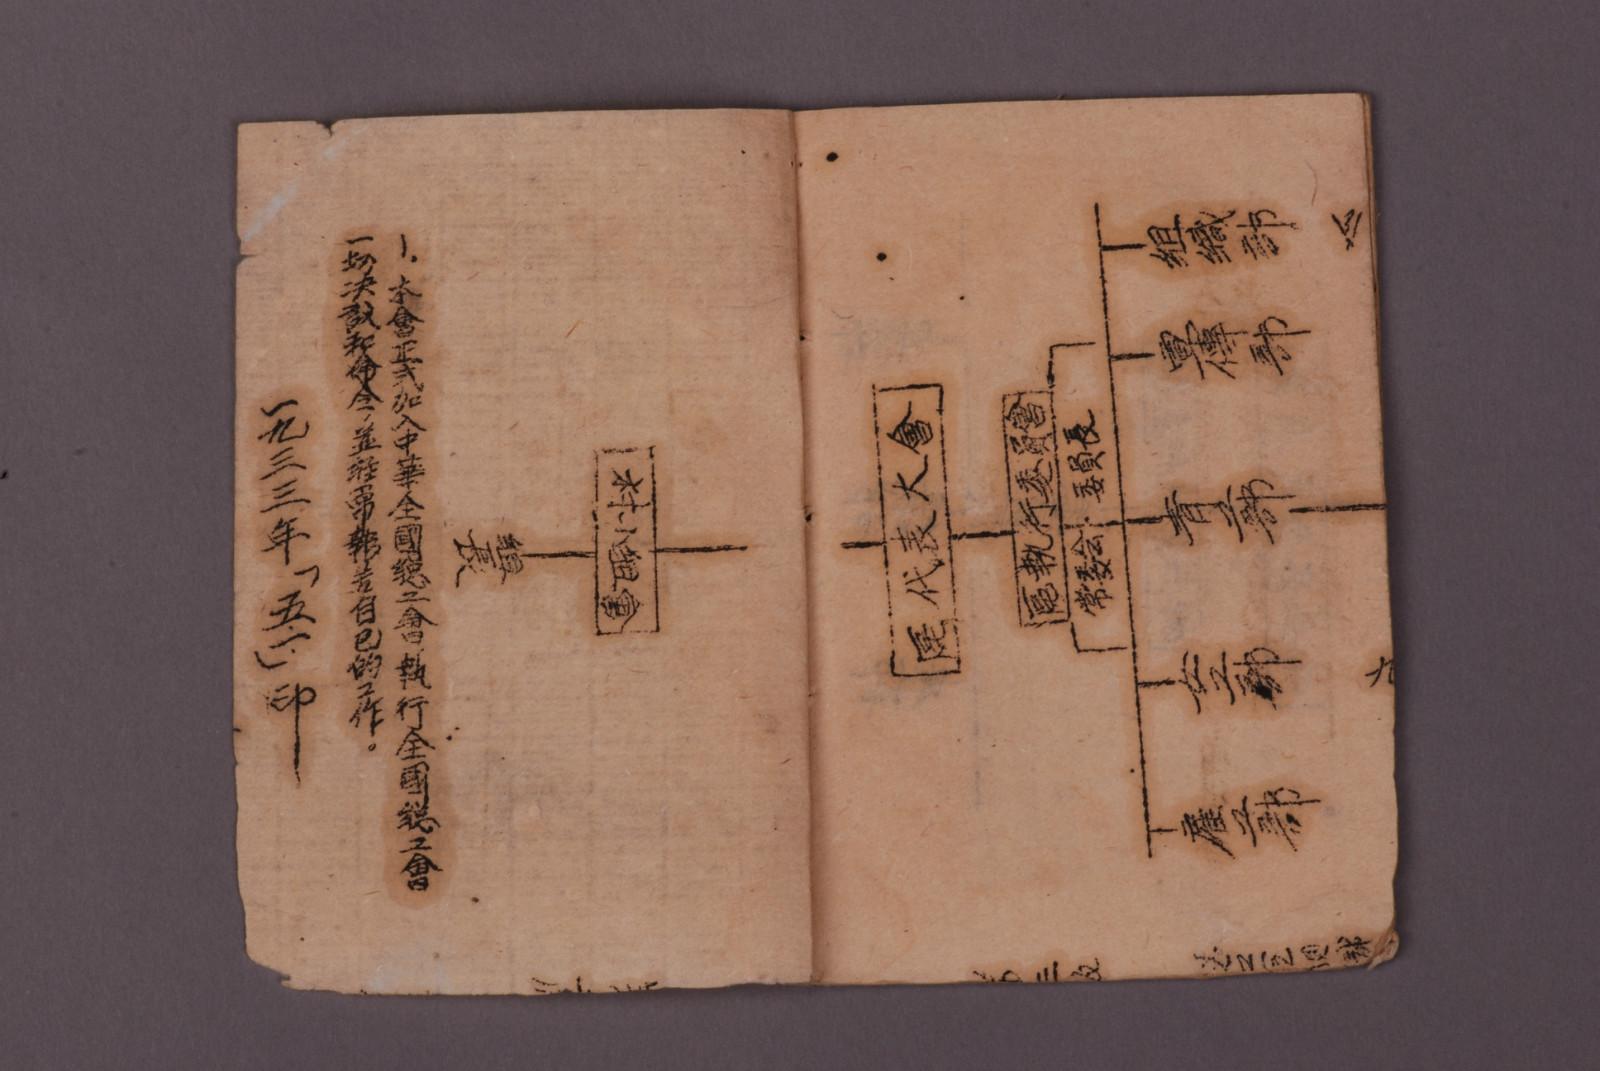 組織部
宣傳部
青工部
女工部
雇工部
委員長
常委会
區執行委員會
區代表大會
村小組會
組員
1、本會正式加入中華全國總工會執行全國總工會
一切决議和命令,並經常報告自已的工作。
一九三三年「五.一」印